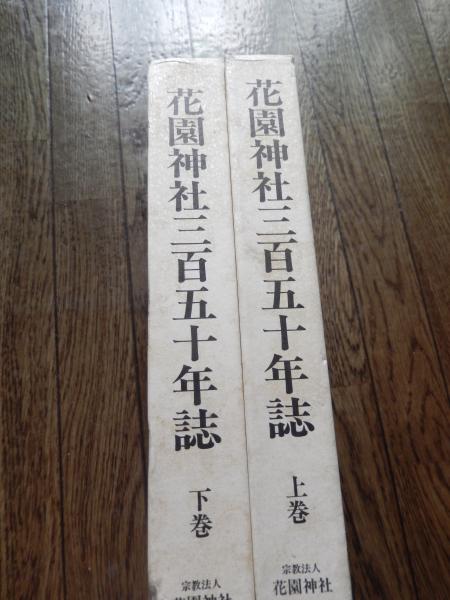 花園神社三百五十年誌
上巻
宗教法人
花園神社
花園神社三百五十年誌
下巻
宗教法人
花園神社